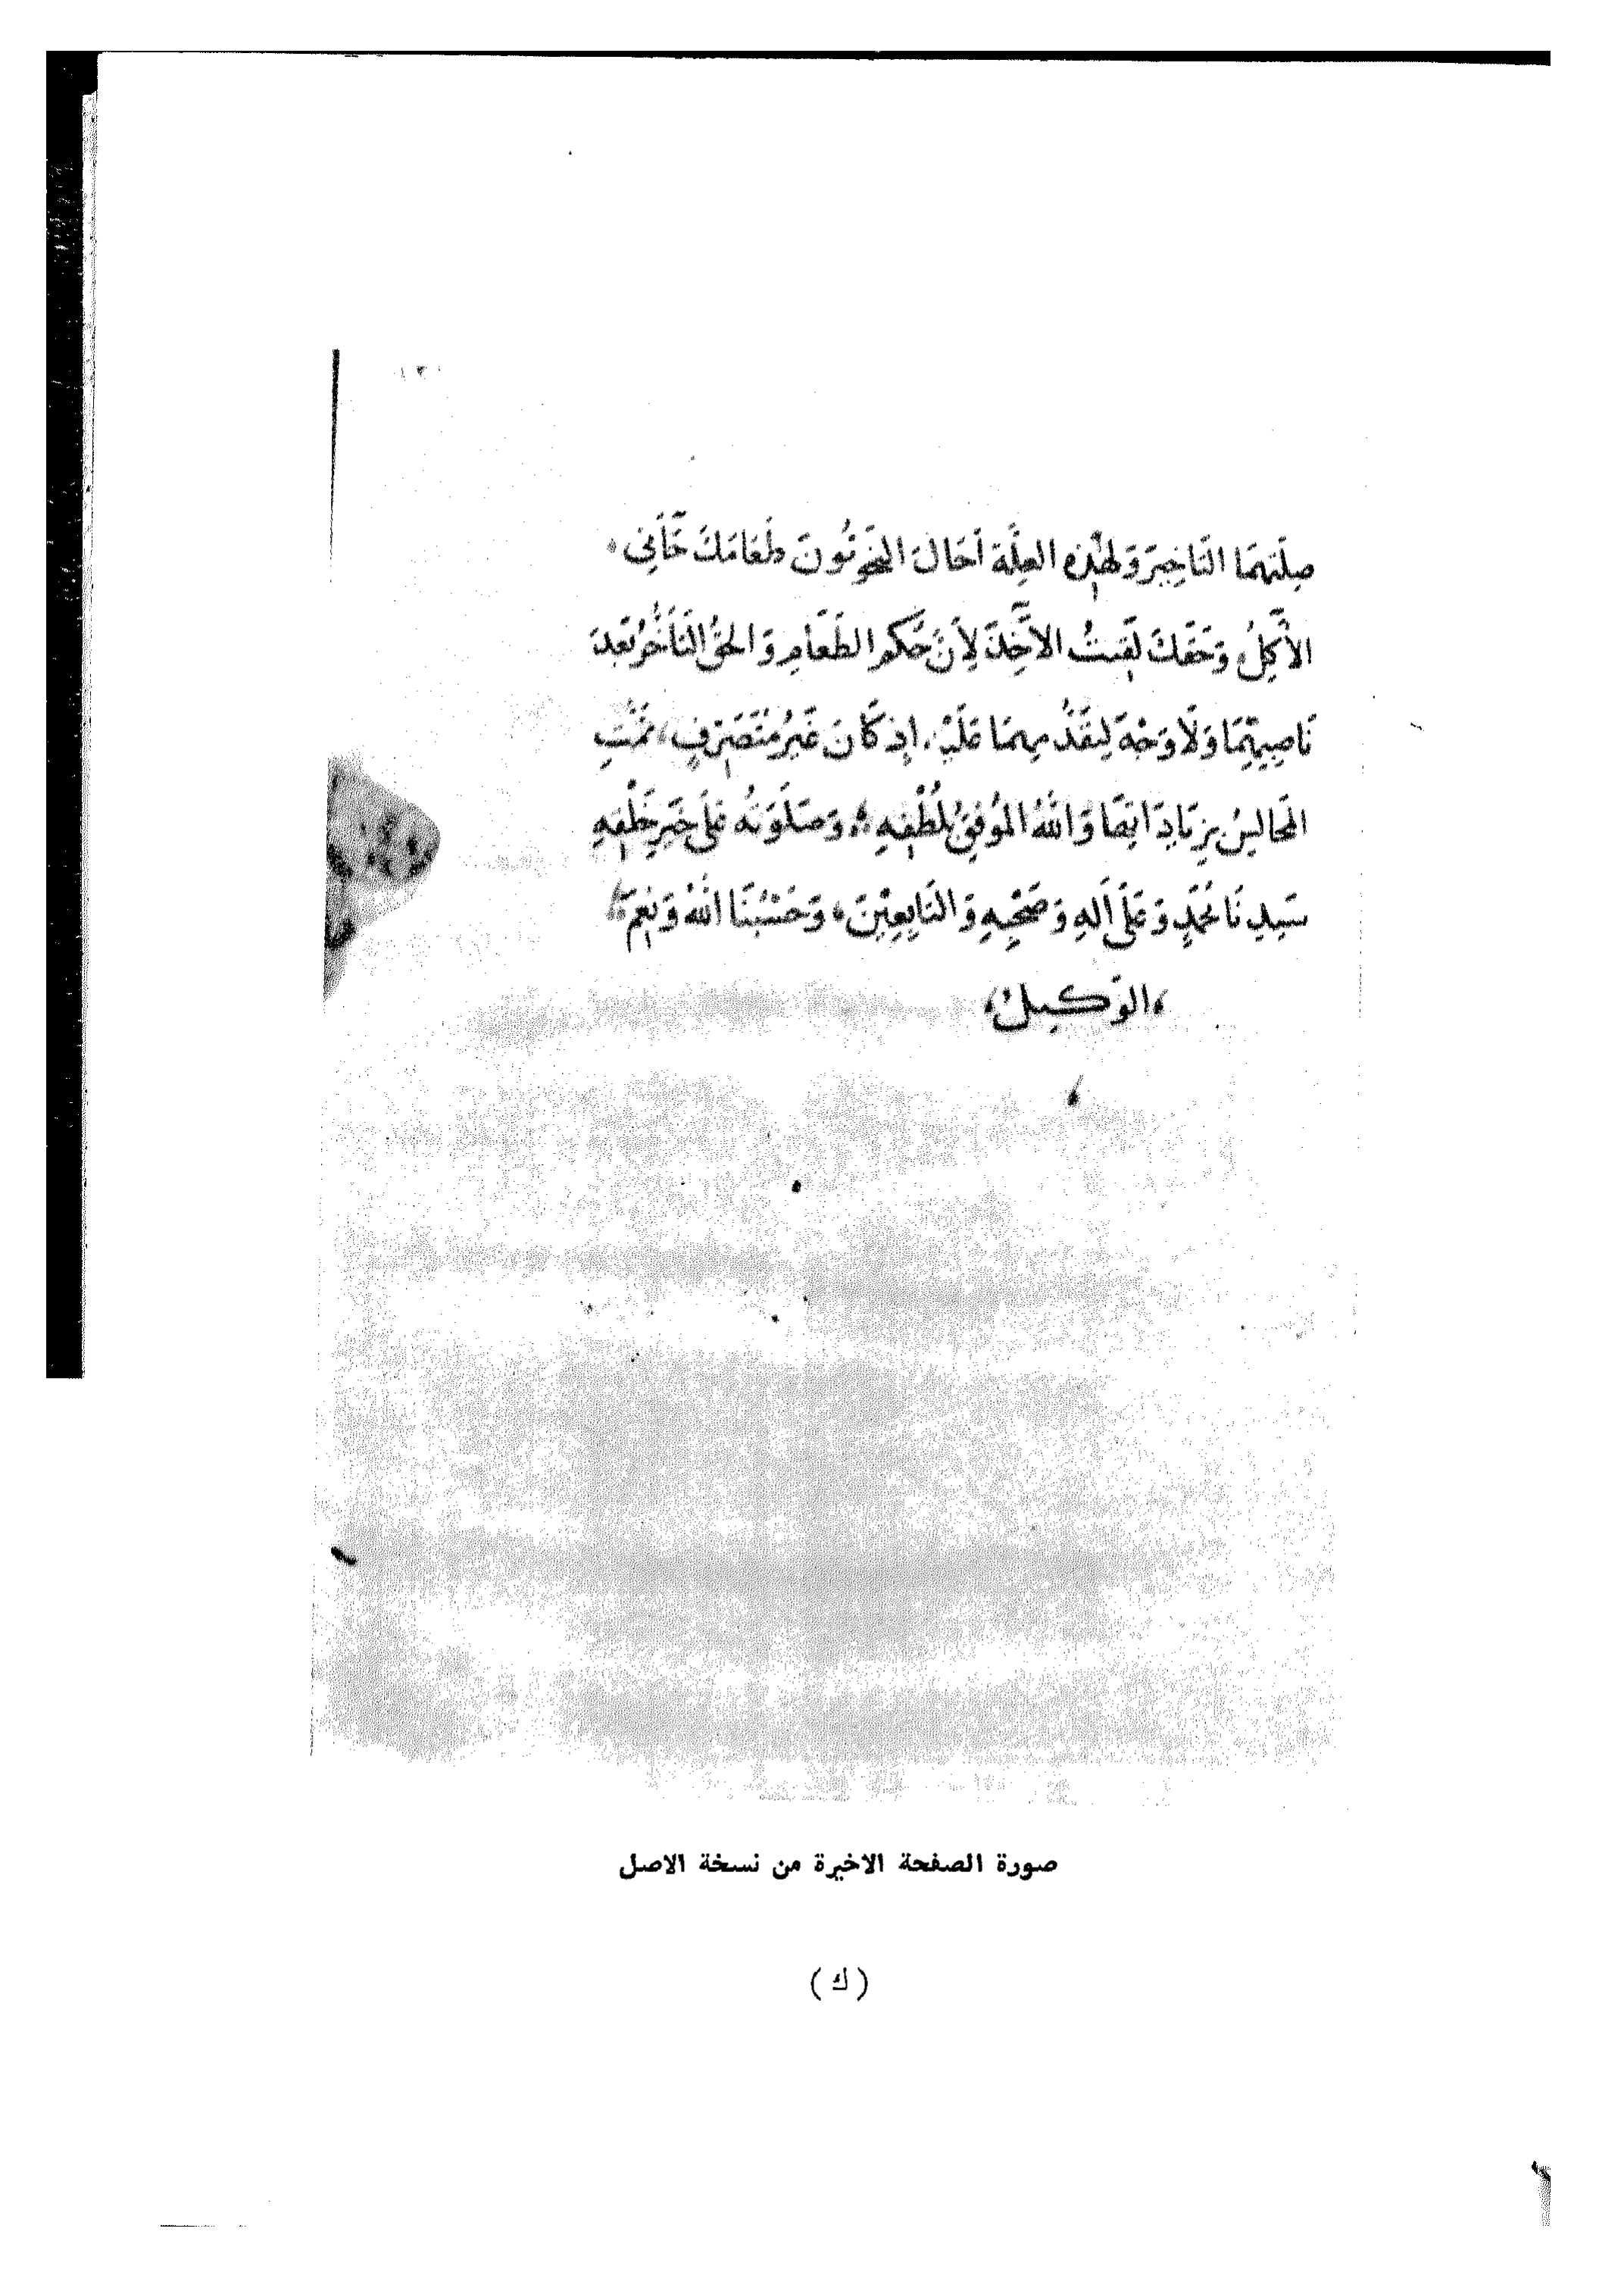 صِلَتِهِمَا التَّاخِيرَ وَلِهٰذِهِ العِلَّةِ أَحَالَ النَّحْوِيُّونَ طَعَامَكَ جَآءَنِي
الآكِلُ وَحَقَّكَ لَقِيتُ الآخِذَ لِأَنَّ حُكْمَ الطَّعَامِ وَالحَقِّ التَّأَخُّرُ بَعْدَ
نَاصِبَيْهِمَا وَلَا وَجْهَ لِتَقَدُّمِهِمَا عَلَيْهِ إِذ كَانَ غَيْرُ مُتَصَرِّفٍ تَمَّتِ
المَجَالِسُ بِزِيَادَاتِهَا وَاللّٰهُ المُوَفِّقُ بِلُطْفِهِ وَصَلَوٰتُهُ عَلَى خَيْرِ خَلْقِهِ
سَيِّدِنَا مُحَمَّدٍ وَعَلَى آلِهِ وَصَحْبِهِ وَالتَّابِعِيْنَ وَحَسْبُنَا اللّٰهُ وَنِعْمَ
الوَكِيلُ
صورة الصفحة الاخيرة من نسخة الاصل
( ك )